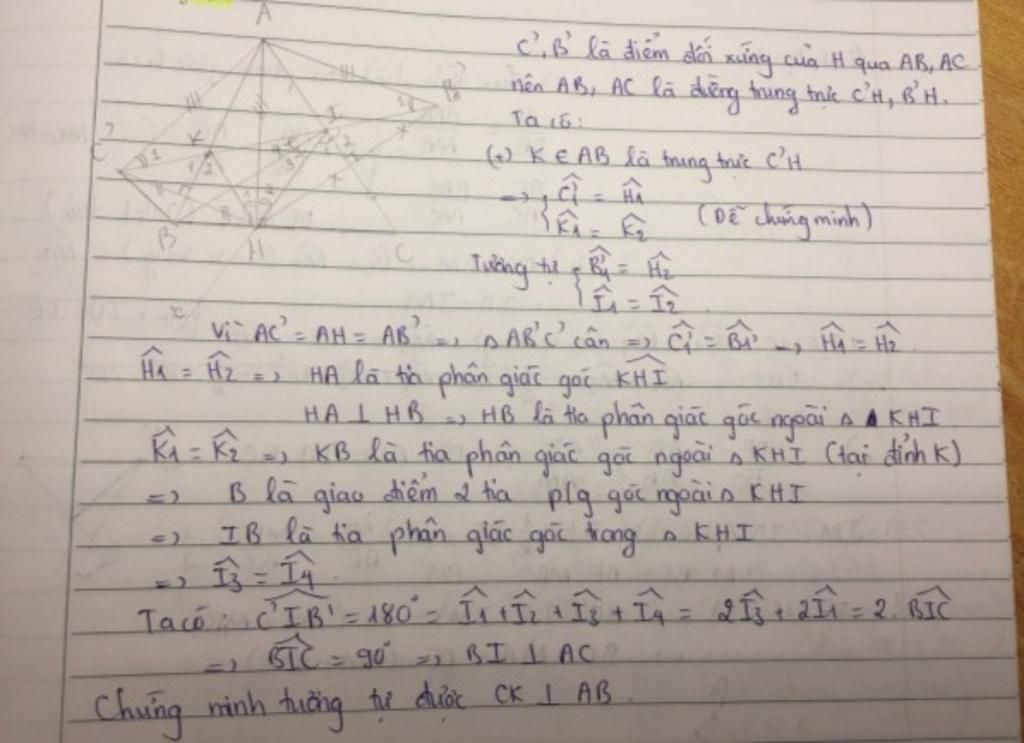 A
C', B' là điểm đối xứng của H qua AB, AC
nên AB, AC là đường trung trực C'H, B'H.
Ta có:
(+) K ∈ AB là trung trực C'H
→ { Ĉ'₁ = Ĥ₁
K̂₁ = K̂₂ (Dễ chứng minh)
B H C
Tương tự { B̂'₁ = Ĥ₂
Î₁ = Î₂
Vì AC' = AH = AB' => △ AB'C' cân => Ĉ'₁ = B̂₁' => Ĥ₁ = Ĥ₂
Ĥ₁ = Ĥ₂ => HA là tia phân giác góc KHI
HA ⊥ HB => HB là tia phân giác góc ngoài △ KHI
K̂₁ = K̂₂ => KB là tia phân giác góc ngoài △ KHI (tại đỉnh K)
=> B là giao điểm 2 tia p/g góc ngoài △ KHI
=> IB là tia phân giác góc trong △ KHI
=> Î₃ = Î₄
Ta có: C'IB' = 180° = Î₁ + Î₂ + Î₃ + Î₄ = 2Î₃ + 2Î₁ = 2. BIC
=> BIC = 90° => BI ⊥ AC
Chứng minh tương tự được CK ⊥ AB.